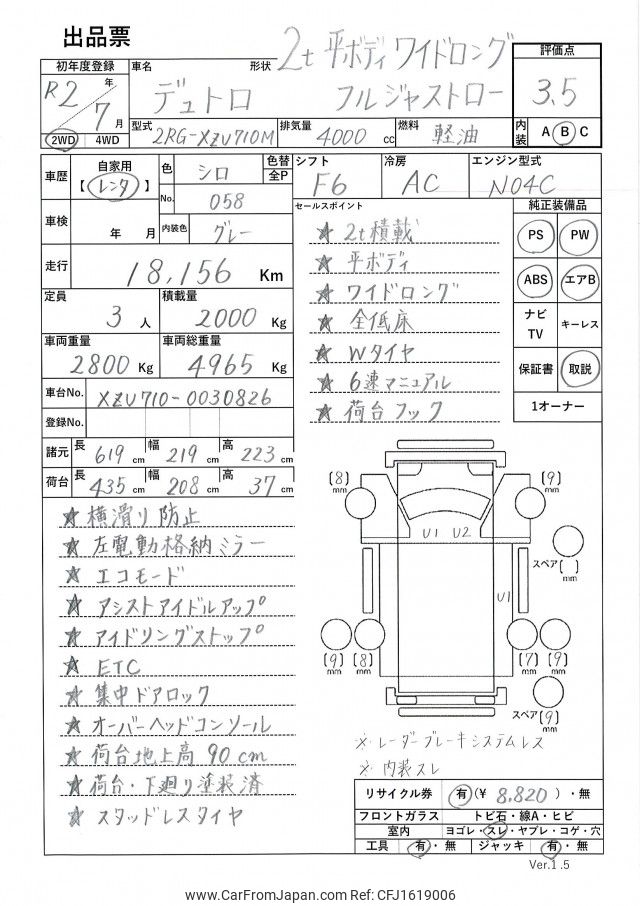 出品票
2t 平ボディ ワイドロング
フルジャストロー
初年度登録
R2 年
7 月
2WD 4WD
車名 形状
デュトロ
評価点
3.5
内装 A B C
型式 2RG-XZU710M
排気量 4000 cc
燃料 軽油
車歴 自家用
【 レンタ 】
色 シロ 色替 全P
No. 058
シフト F6
冷房 AC
エンジン型式 N04C
車検 年 月
内装色 グレー
走行 18,156 Km
定員 3 人
積載量 2000 Kg
車両重量 2800 Kg
車両総重量 4965 Kg
車台No. XZU710-0030826
登録No.
諸元 長 619 cm 幅 219 cm 高 223 cm
荷台 長 435 cm 幅 208 cm 高 37 cm
セールスポイント
★ 2t積載
★ 平ボディ
★ ワイドロング
★ 全低床
★ Wタイヤ
★ 6速マニュアル
★ 荷台フック
純正装備品
PS PW
ABS エアB
ナビ TV キーレス
保証書 取説
1オーナー
★ 横滑り防止
★ 左電動格納ミラー
★ エコモード
★ アシストアイドルアップ
★ アイドリングストップ
★ ETC
★ 集中ドアロック
★ オーバーヘッドコンソール
★ 荷台地上高 90cm
★ 荷台・下廻り塗装済
★ スタッドレスタイヤ
(8) mm
(9) mm
U1 U2
スペア( ) mm
U1
(9) mm (8) mm
(7) mm (9) mm
スペア(9) mm
※ レーダーブレーキシステムレス
※ 内装スレ
リサイクル券 有(¥ 8,820 )・無
フロントガラス トビ石・線A・ヒビ
室内 ヨゴレ・スレ・ヤブレ・コゲ・穴
工具 有・無 ジャッキ 有・無
Ver.1.5
www.CarFromJapan.com Ref: CFJ1619006